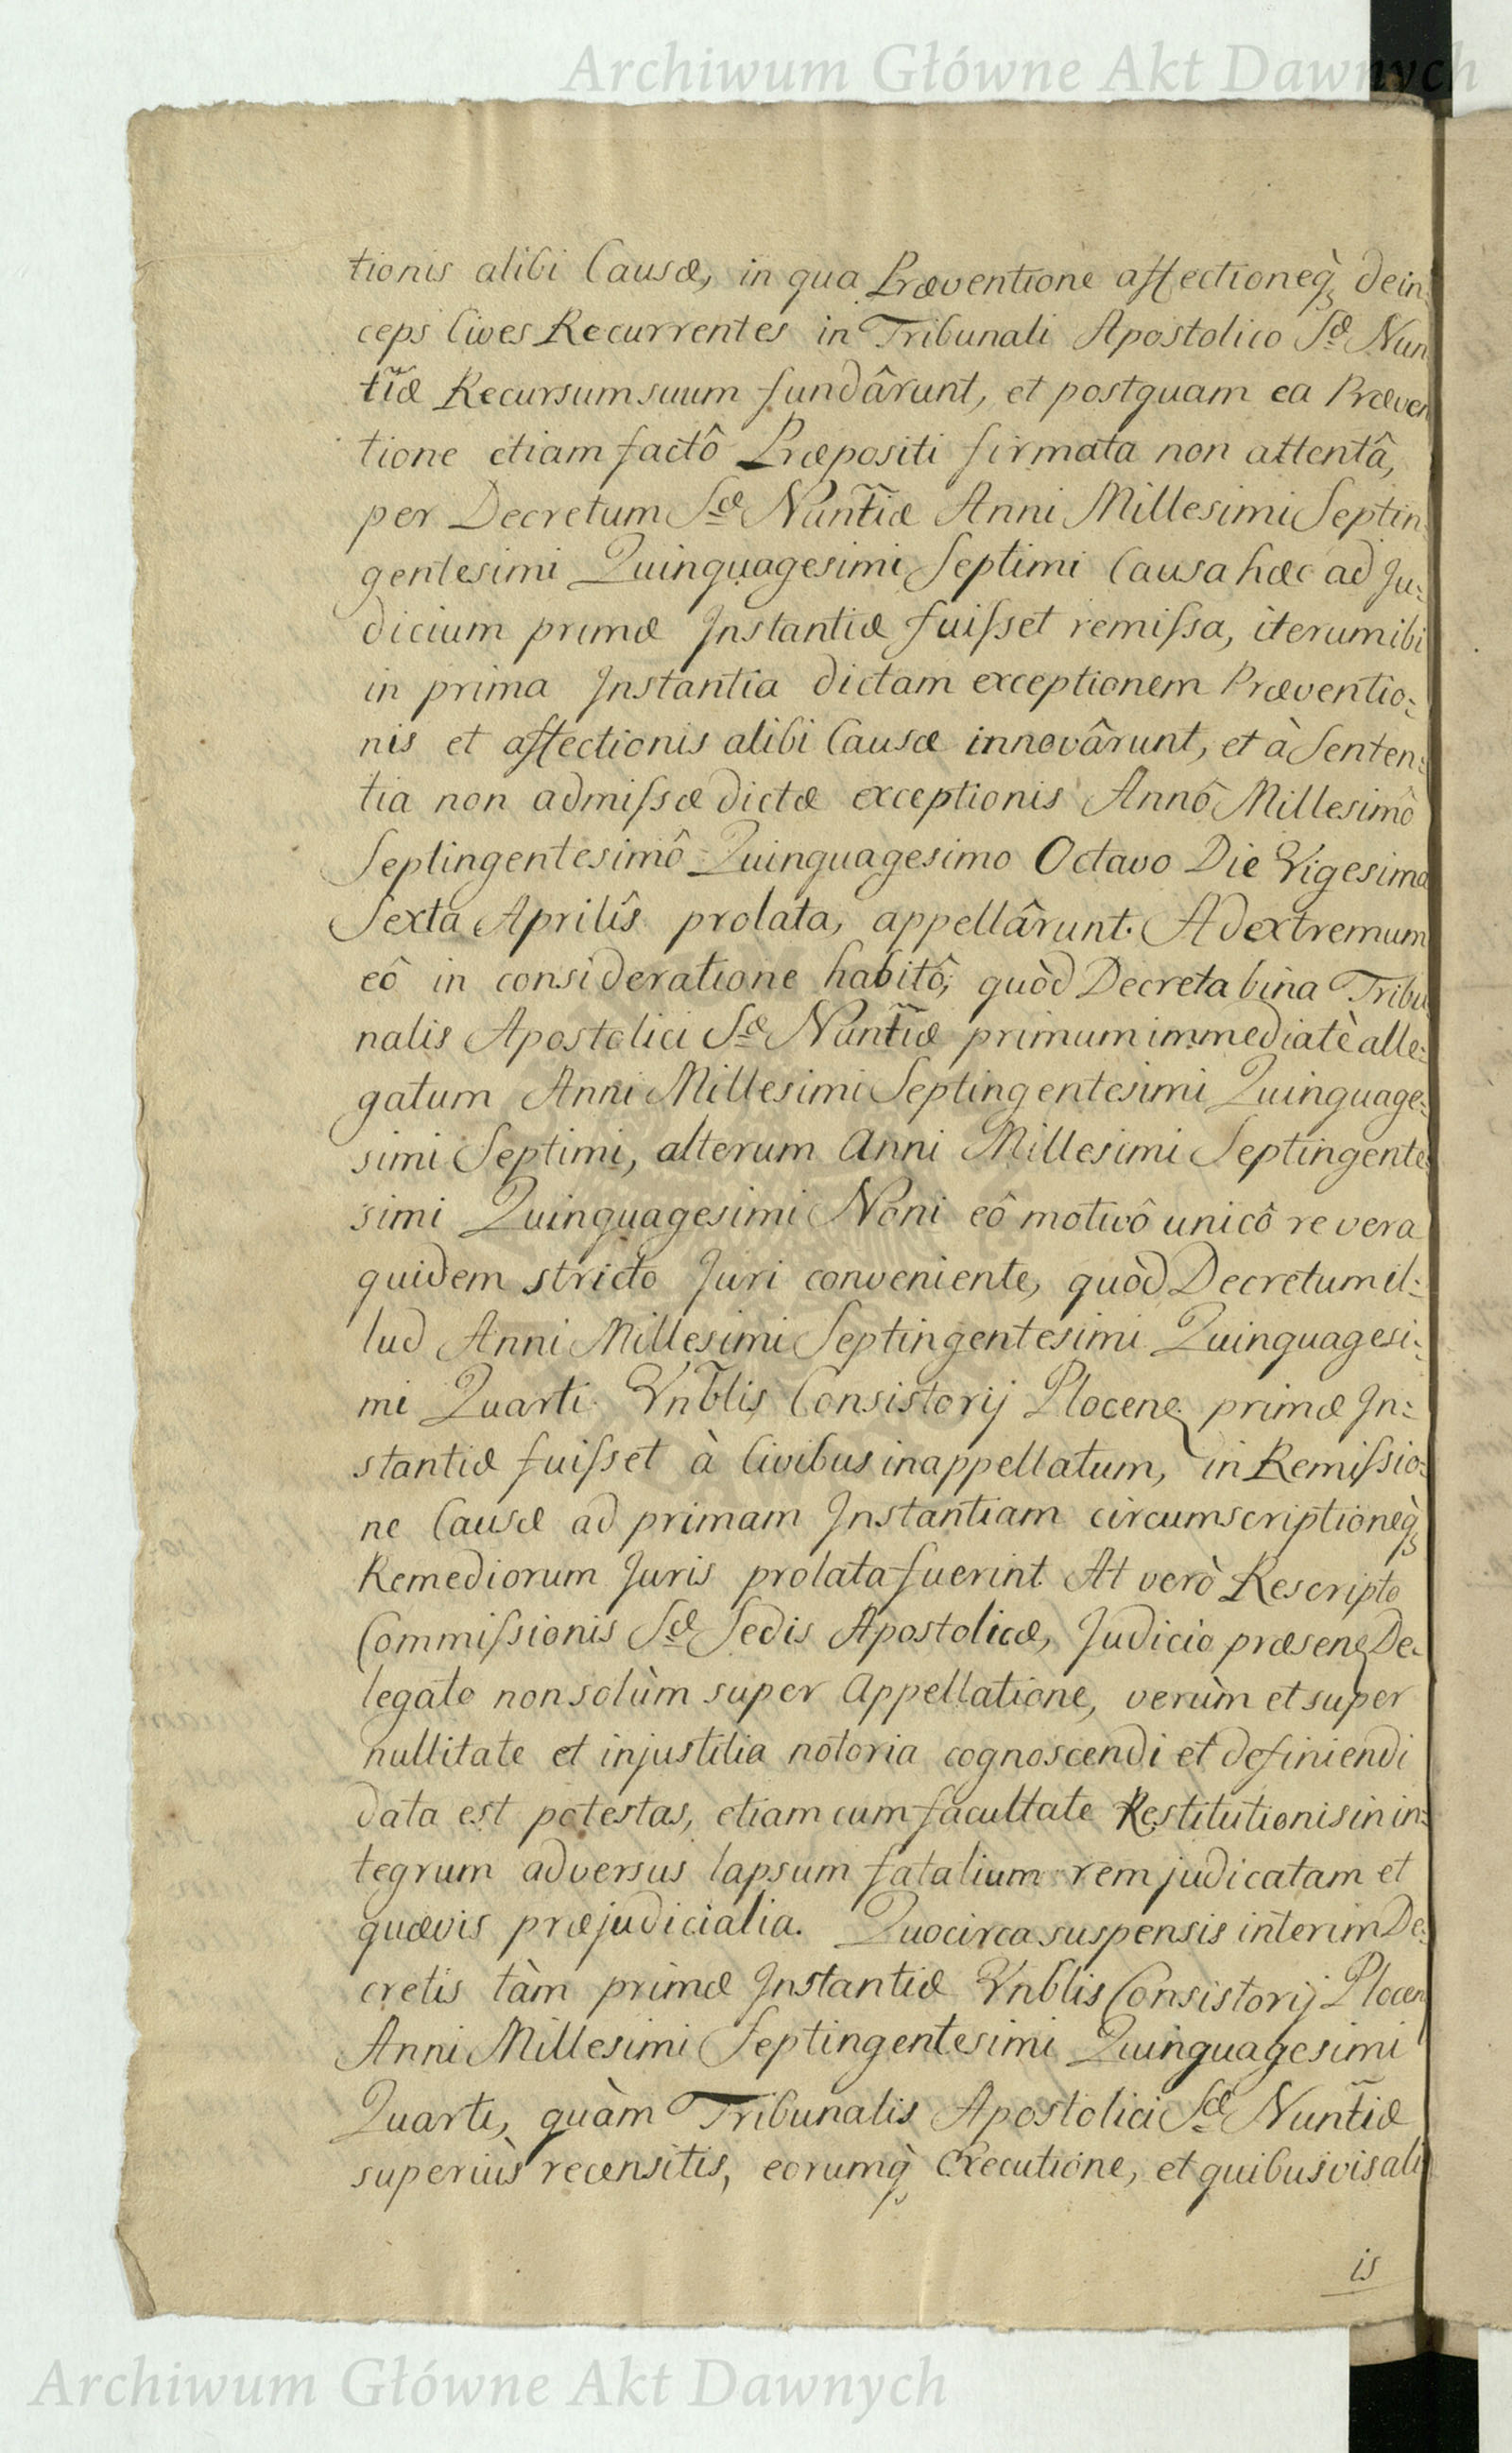 Archiwum Główne Akt Dawnych
tionis alibi Causæ, in qua Præventione affectioneq̀ dein:
ceps Cives Recurrentes in Tribunali Apostolico Sæ Nun
tiæ Recursum suum fundârunt, et postquam ea Præven
tione etiam factô Præpositi firmata non attentâ,
per Decretum Sæ Nuntiæ Anni Millesimi Septin:
gentesimi Quinquagesimi Septimi Causa hæc ad Ju:
dicium primæ Jnstantiæ fuisset remissa, iterum ibi
in prima Jnstantia dictam exceptionem Præventio:
nis et affectionis alibi Causæ innovârunt, et à Senten:
tia non admissæ dictæ exceptionis Annô Millesimô
Septingentesimô Quinquagesimo Octavo Die Vigesima
Sexta Aprilis prolata, appellârunt. Ad extremum
eô in consideratione habitô, quòd Decreta bina Tribu
nalis Apostolici Sæ Nuntiæ primum immediatè alle:
gatum Anni Millesimi Septingentesimi Quinquage:
simi Septimi, alterum Anni Millesimi Septingente
simi Quinquagesimi Noni eô motivô unicô re vera
quidem stricto Juri conveniente, quòd Decretum il:
lud Anni Millesimi Septingentesimi Quinquagesi:
mi Quarti Vnblis Consistorij Plocen primæ Jn:
stantiæ fuisset à Civibus inappellatum, in Remissio:
ne Causæ ad primam Jnstantiam circumscriptioneq̀
Remediorum Juris prolata fuerint. At verò Rescripto
Commissionis Sæ Sedis Apostolicæ, Judicio præsen De:
legato non solùm super Appellatione, verùm et super
nullitate et injustitia notoria cognoscendi et definiendi
data est potestas, etiam cum facultate Restitutionis in in:
tegrum adversus lapsum fatalium rem judicatam et
quævis præjudicialia. Quocirca suspensis interim De:
cretis tàm primæ Jnstantiæ Vnblis Consistorij Plocen
Anni Millesimi Septingentesimi Quinquagesimi
Quarti, quàm Tribunalis Apostolici Sæ Nuntiæ
superiùs recensitis, eorumq̀ Executione, et quibusvis ali
is
Archiwum Główne Akt Dawnych